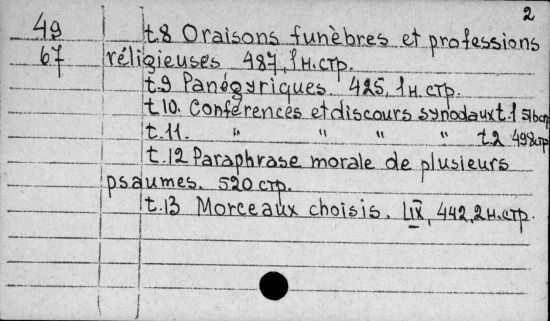 2
49 t.8 Oraisons funèbres et professions
67 réligieuses 487, 1н.стр.
t.9 Panégyriques. 425, 1н.стр.
t.10. Conférences et discours synodaux t.1 516стр
t.11. " " " " t.2 498стр
t.12 Paraphrase morale de plusieurs
psaumes. 520 стр.
t.13 Morceaux choisis. LIX, 442, 2н.стр.